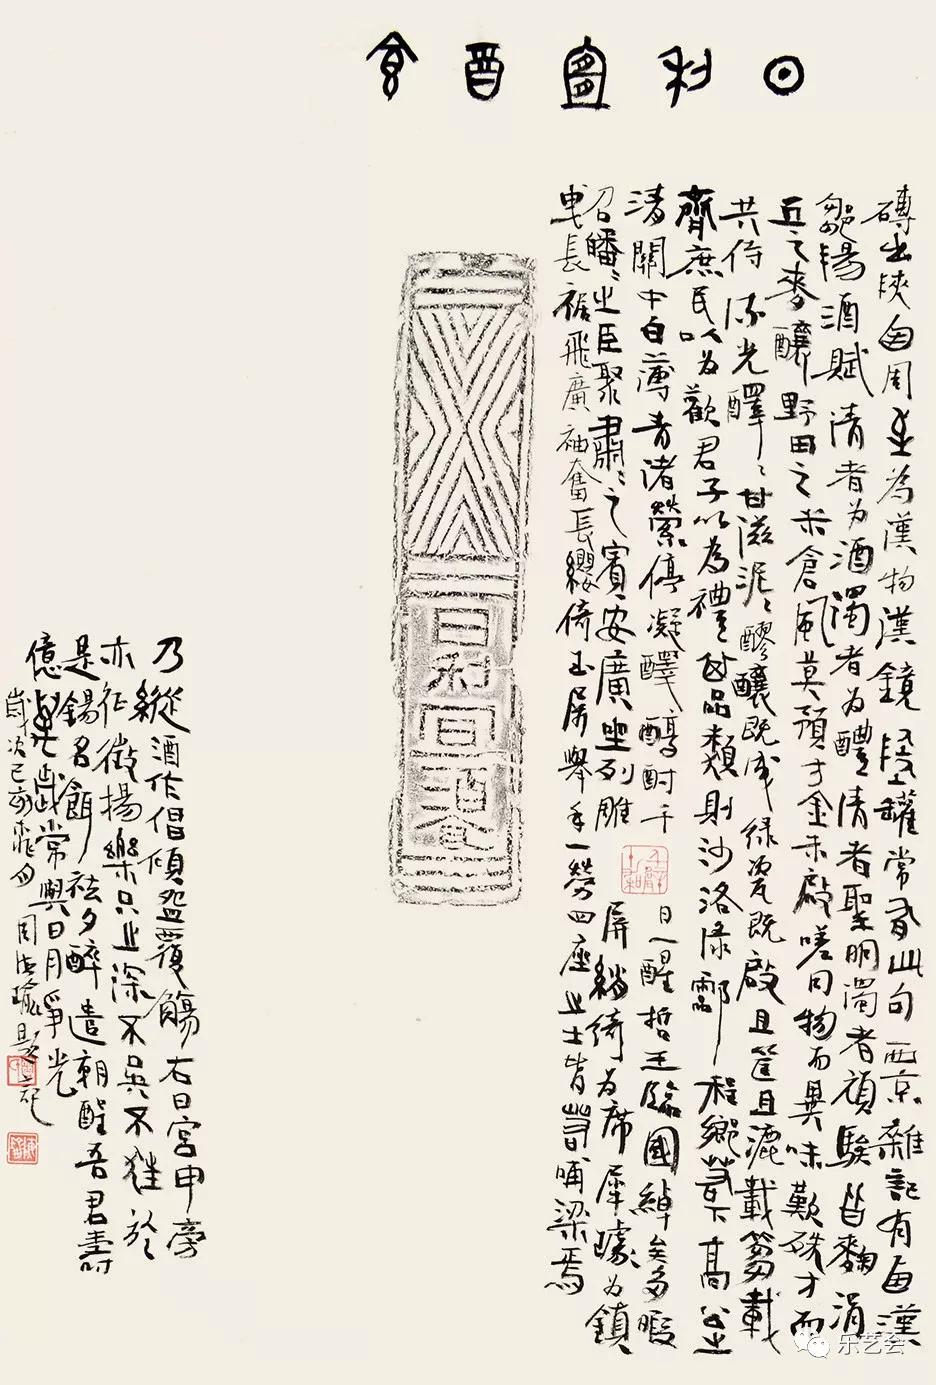 日利宜酉食
磚出陝西周至為漢物漢鏡及罐常有此句西京雜記有西漢
鄒陽酒賦清者为酒濁者为醴清者聖明濁者頑騃皆麴涓
丘之麥釀野田之米倉風莫預方金未啟嗟同物而異味歎殊才而
共侍流光醳〻甘滋泥〻醪釀既成綠瓷既啟且筐且漉載篘載
齊庶民以为歡君子以為禮其品類則沙洛淥酃程鄉若下高公之
清關中白薄青渚縈停凝醳醇酎千日一醒哲王臨國綽矣多暇
召皤〻之臣聚肅〻之賓安廣坐列雕屏綃綺为席犀璩为鎮
曳長裾飛廣袖奮長纓倚玉屏舉手一勞四座之士皆若哺梁焉
日利宜酒食
乃縱酒作倡傾盌覆觴右曰宮申旁
亦征徵揚樂只之深不吳不狂於
是錫名餌袪夕醉遣朝酲吾君壽
億萬歲常與日月爭光
歲次己亥 月周 題記
乐艺会